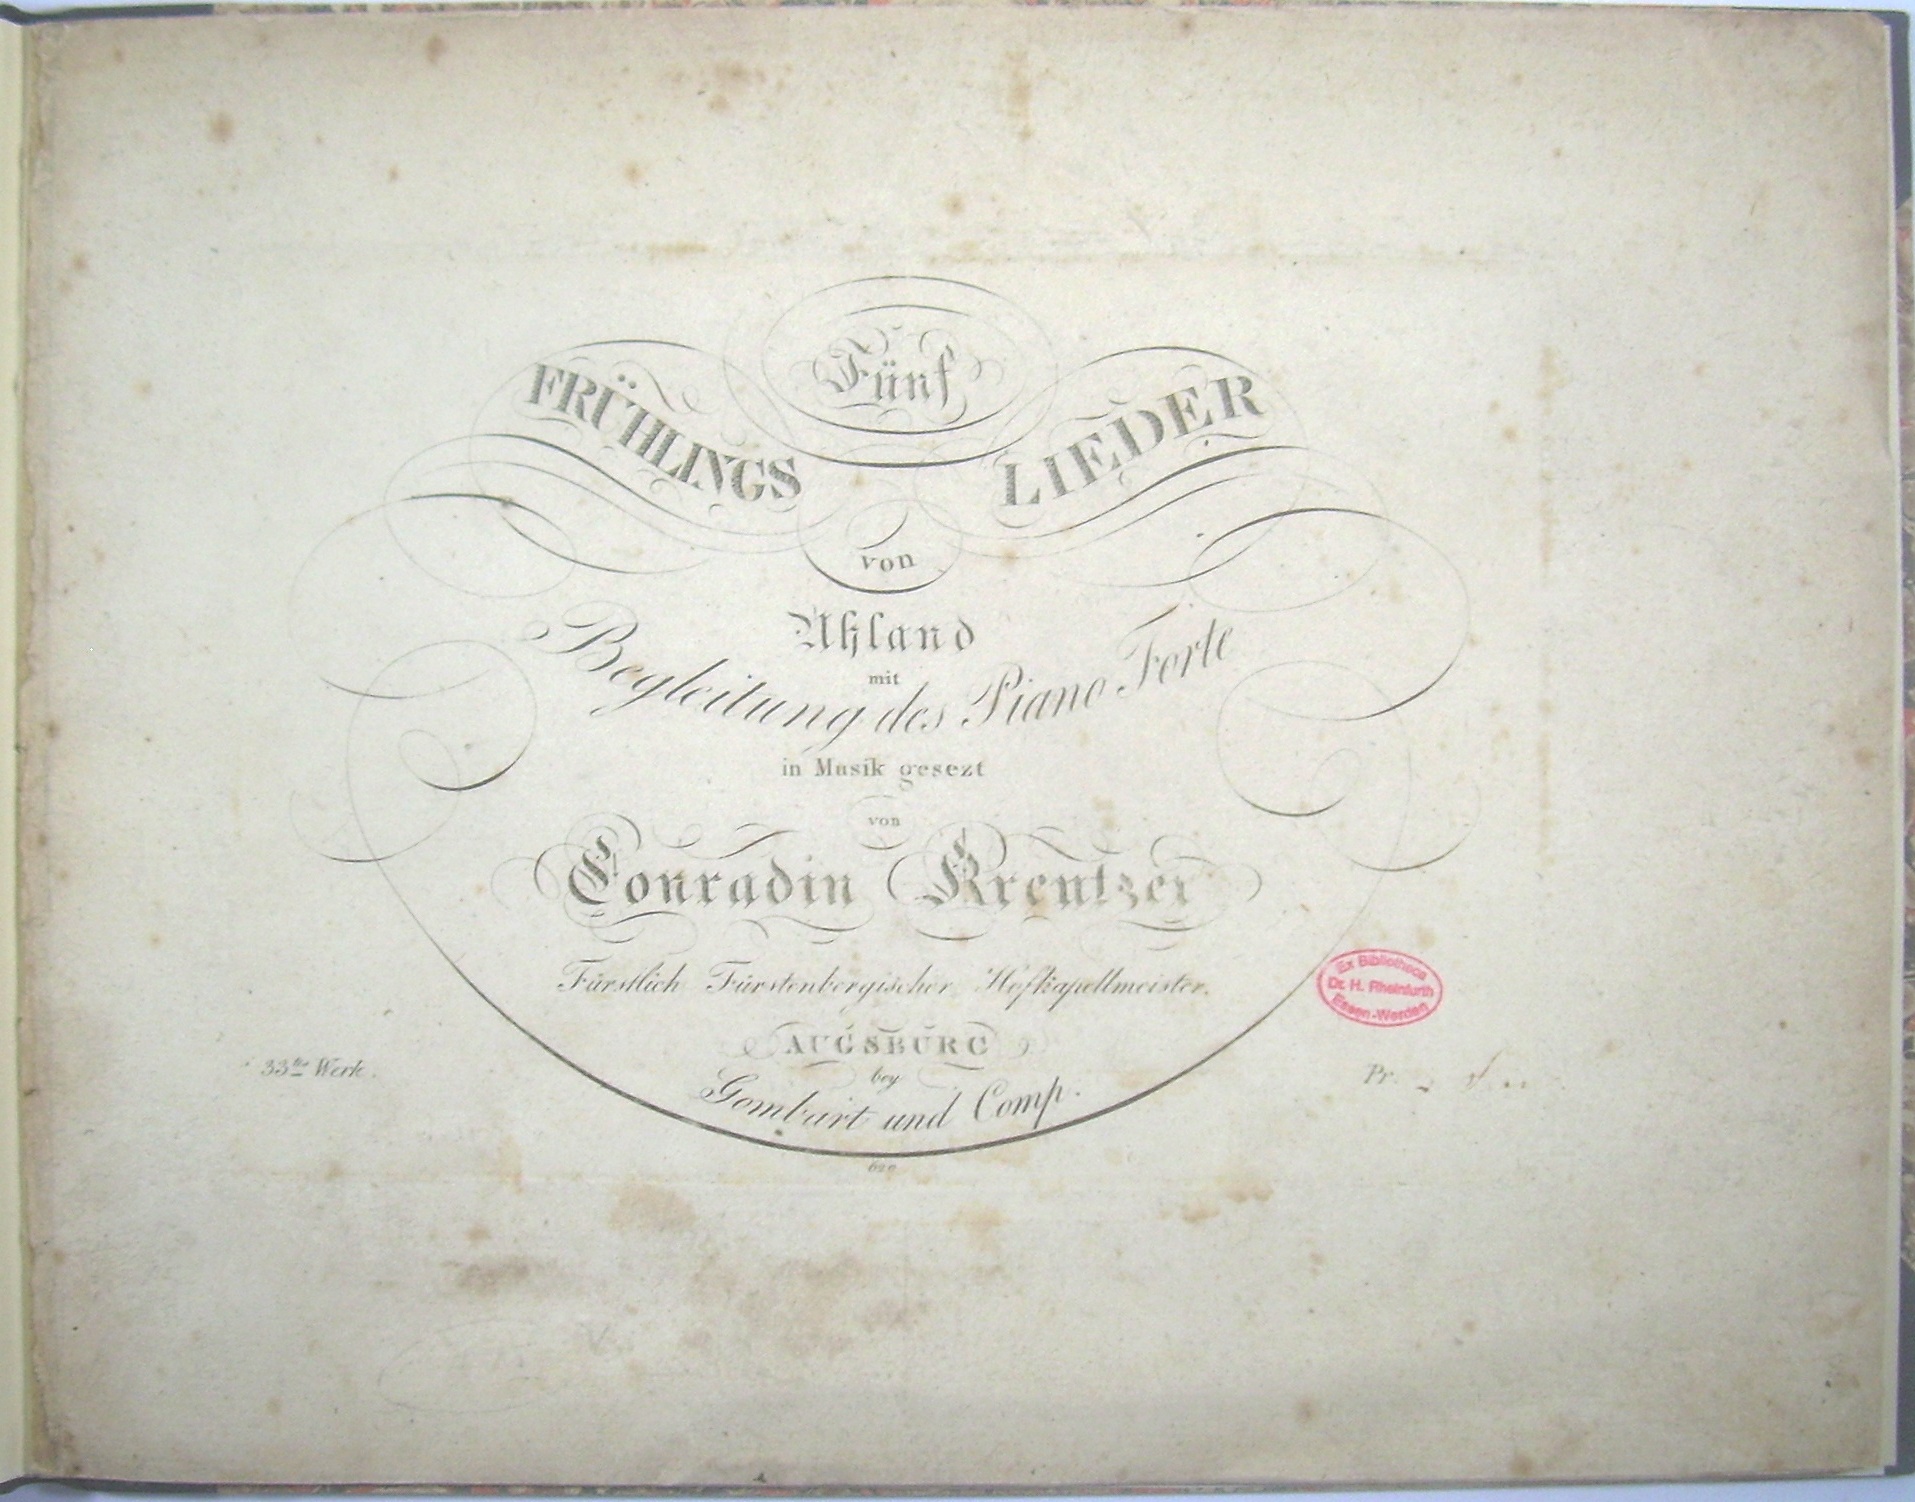 Fünf
FRÜHLINGS LIEDER
von
Uhland
mit
Begleitung des Piano Forte
in Musik gesezt
von
Conradin Kreutzer
Fürstlich Fürstenbergischer Hofkapellmeister.
AUGSBURG
bey
Gombart und Comp.
33tes Werk.
Pr.
Ex Bibliotheca
Dr. H. Rheinfurth
Essen-Werden